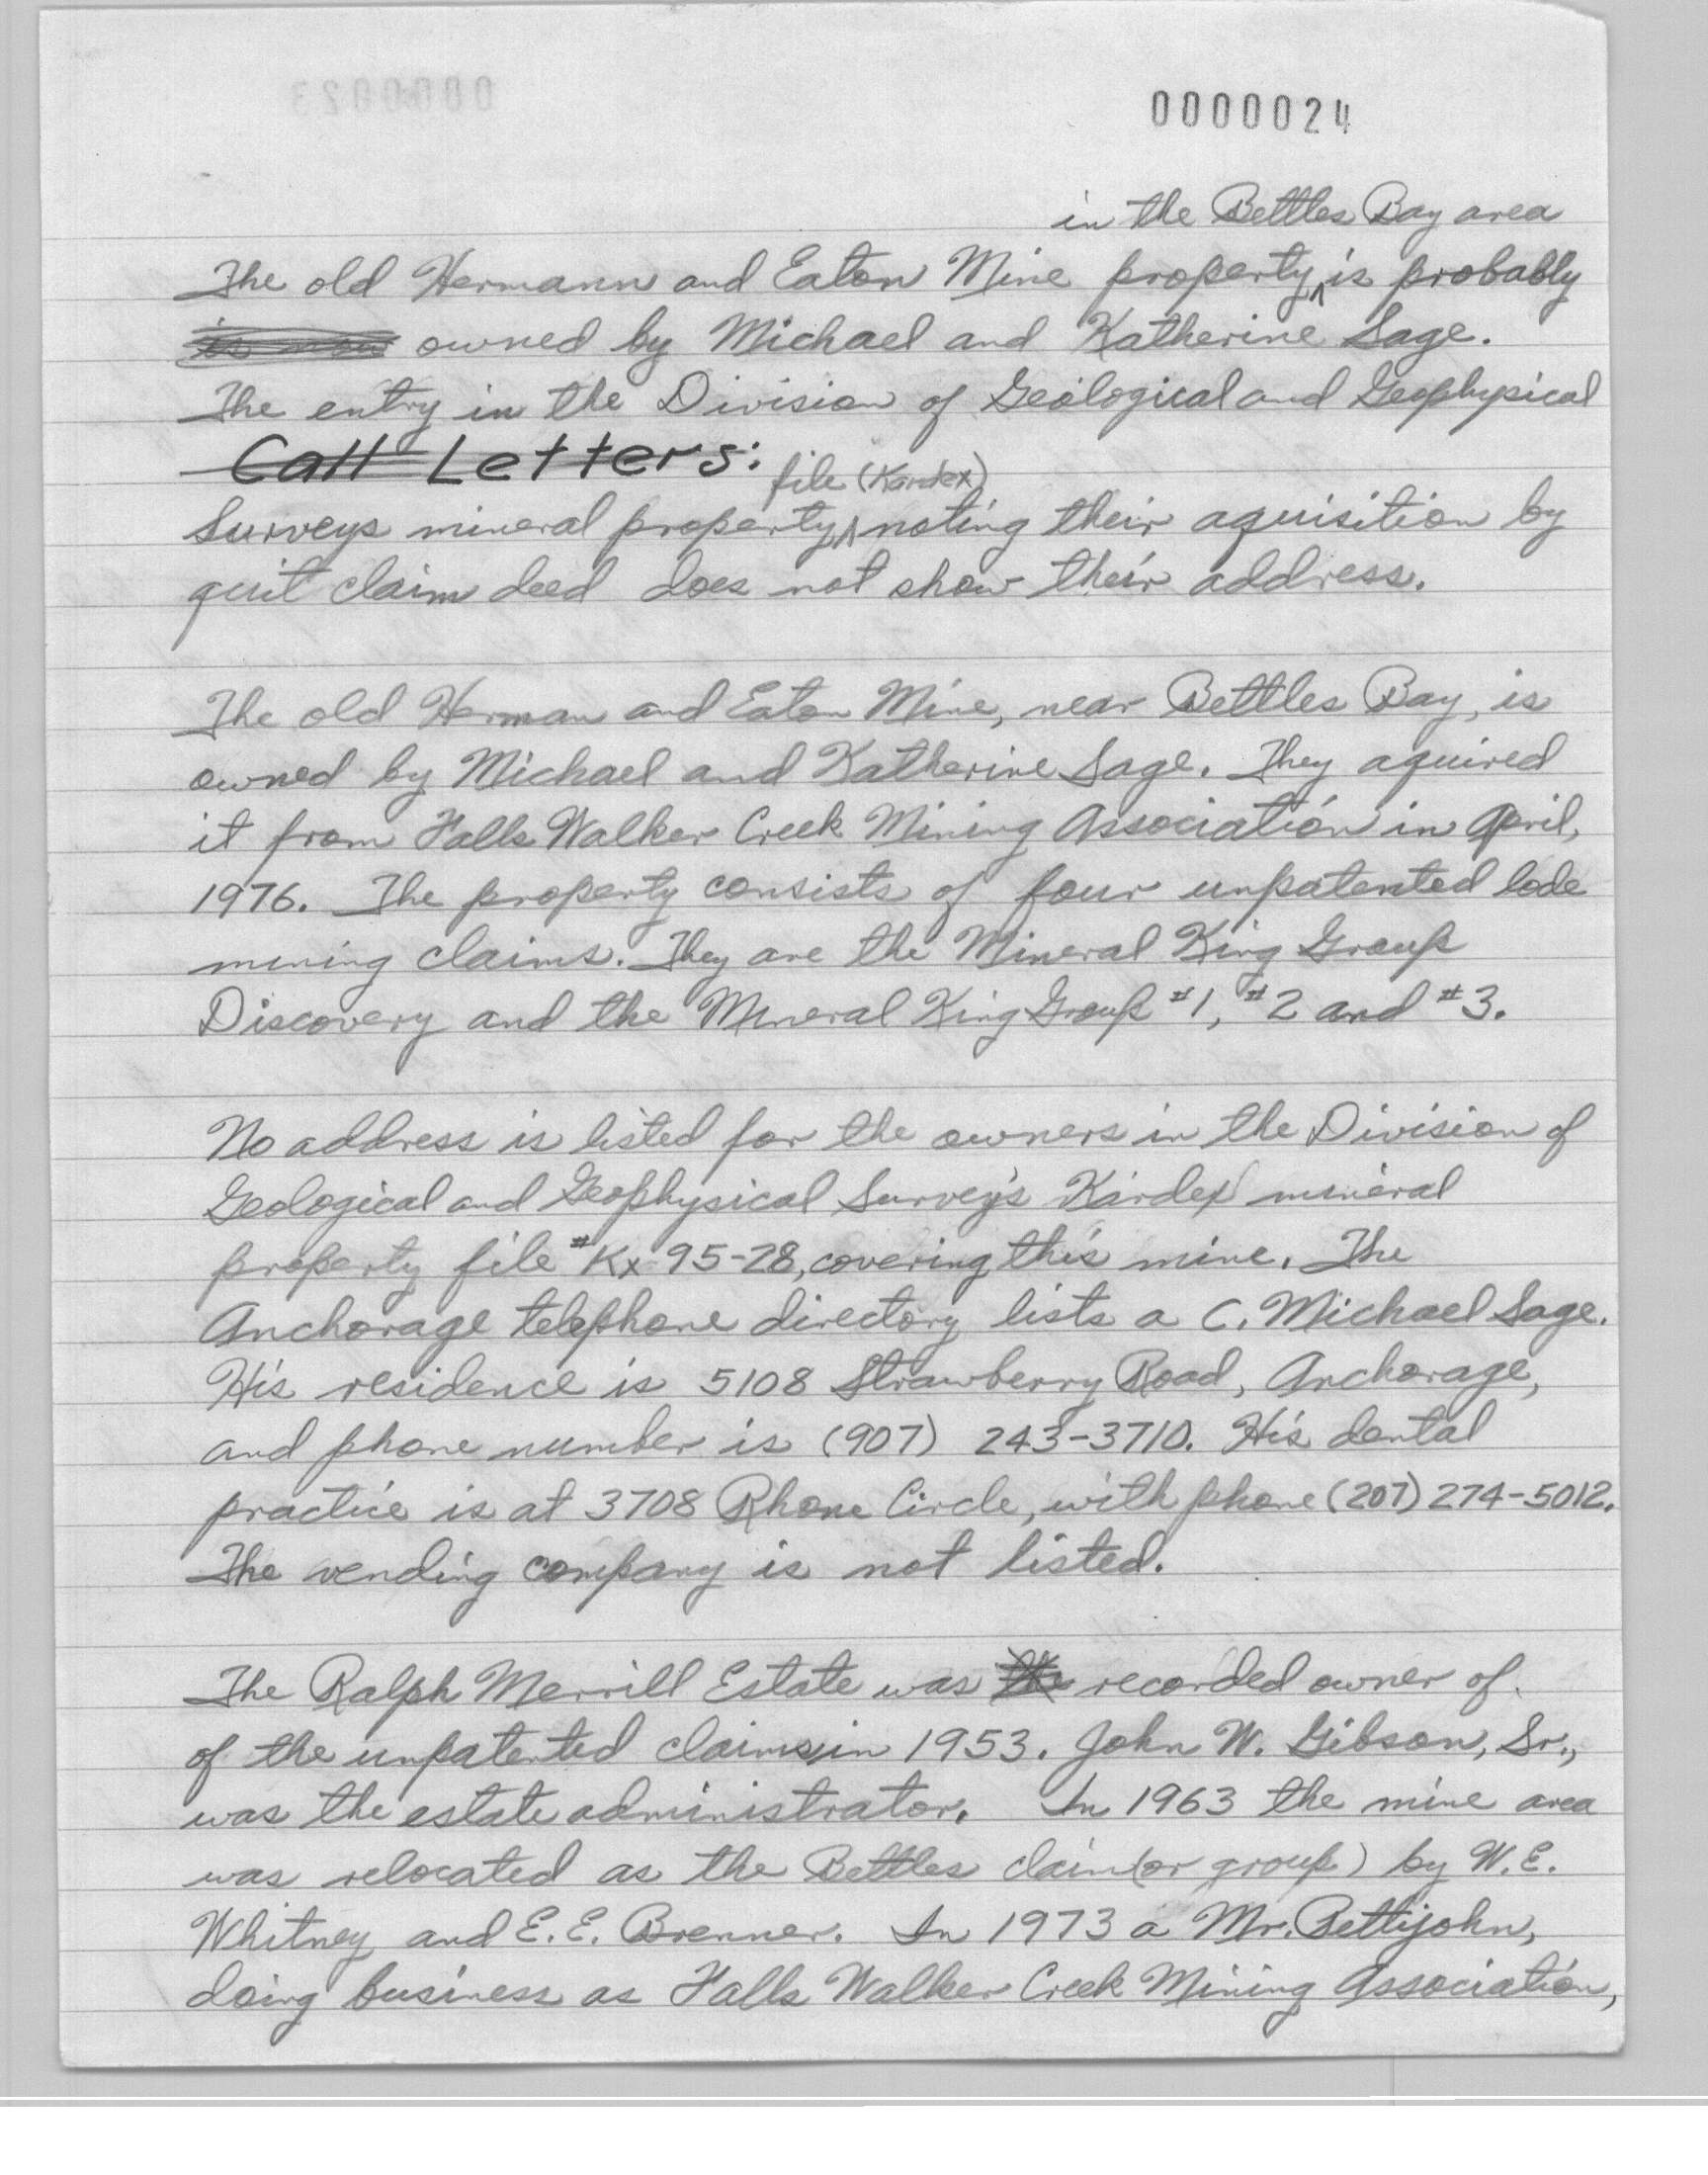 0000023
0000024
in the Bettles Bay area
The old Hermann and Eaton Mine property is probably
is now owned by Michael and Katherine Sage.
The entry in the Division of Geological and Geophysical
Call Letters:
file (Kardex)
Surveys mineral property noting their aquisition by
quit claim deed does not show their address.
The old Herman and Eaton Mine, near Bettles Bay, is
owned by Michael and Katherine Sage. They aquired
it from Falls Walker Creek Mining Association in April,
1976. The property consists of four unpatented lode
mining claims. They are the Mineral King Group
Discovery and the Mineral King Group #1, #2 and #3.
No address is listed for the owners in the Division of
Geological and Geophysical Survey's Kardex mineral
property file #Kx 95-28, covering this mine. The
Anchorage telephone directory lists a C. Michael Sage.
His residence is 5108 Strawberry Road, Anchorage,
and phone number is (907) 243-3710. His dental
practice is at 3708 Rhone Circle, with phone (207) 274-5012.
The vending company is not listed.
The Ralph Merrill Estate was the recorded owner of
of the unpatented claims in 1953. John W. Gibson, Sr.,
was the estate administrator. In 1963 the mine area
was relocated as the Bettles claim (or group) by W.E.
Whitney and E.E. Brenner. In 1973 a Mr. Bettijohn,
doing business as Falls Walker Creek Mining Association,